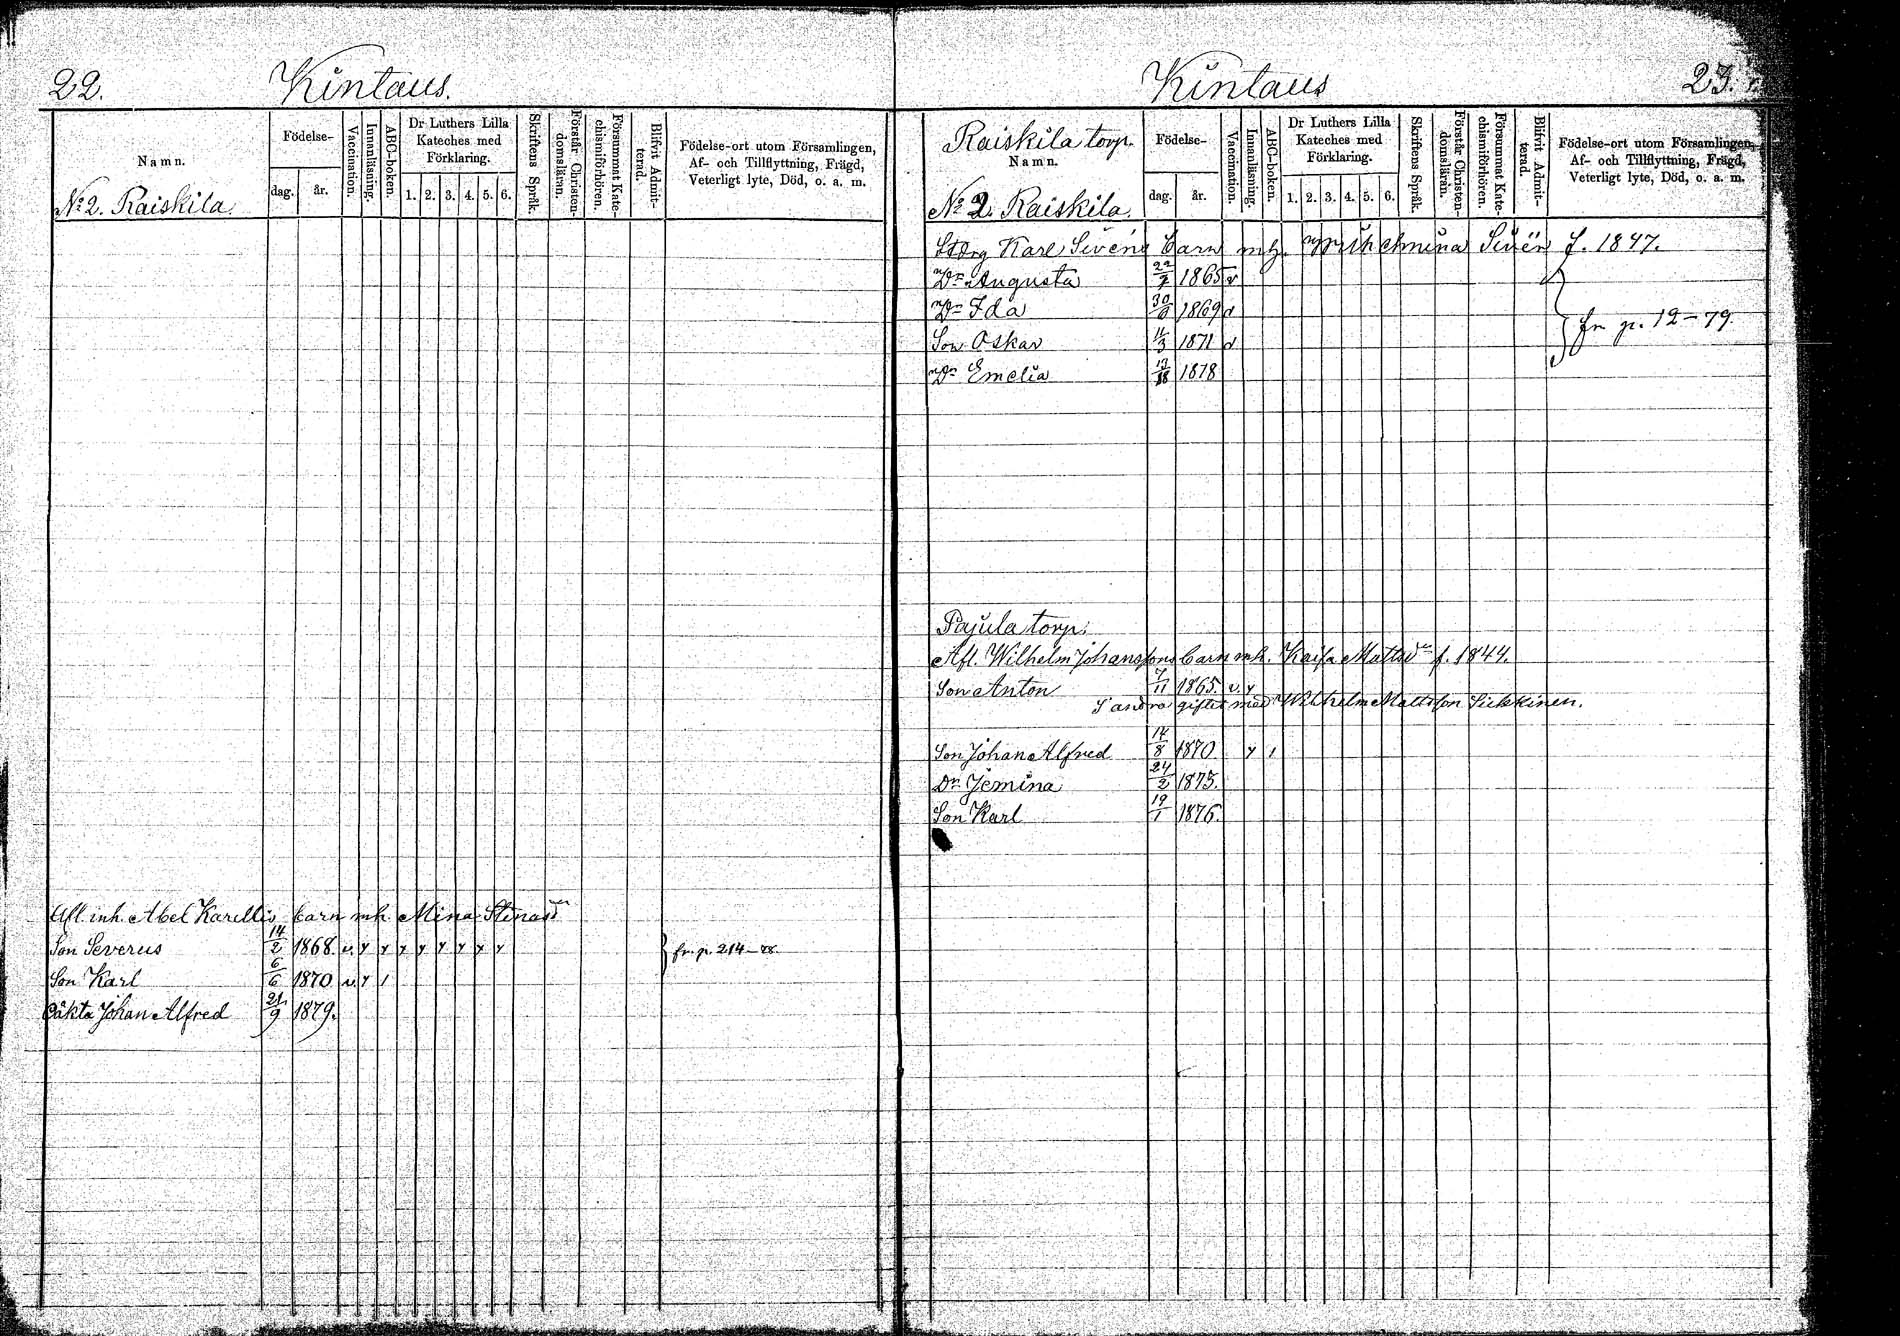 22. Kintaus.
Namn.
No 2. Raiskila.
Födelse-
dag. år.
Vaccination.
Innanläsning.
ABC-boken.
Dr Luthers Lilla
Kateches med
Förklaring.
1. 2. 3. 4. 5. 6.
Skriftens Språk.
Förstår Christen-
domsläran.
Försummat Kate-
chismiförhören.
Blifvit Admit-
terad.
Födelse-ort utom Församlingen,
Af- och Tillflyttning, Frägd,
Veterligt lyte, Död, o. a. m.
Afl. inh. Abel Karellis barn mh. Mina Stinasdr
Son Severus 14/2 1868. v. y y y y y y y y } fr. p. 214-
Son Karl 6/6 1870 v. y 1
Oäkta Johan Alfred 21/9 1879.
Kintaus 23.
Raiskila torp.
Namn.
No 2. Raiskila.
Födelse-
dag. år.
Vaccination.
Innanläsning.
ABC-boken.
Dr Luthers Lilla
Kateches med
Förklaring.
1. 2. 3. 4. 5. 6.
Skriftens Språk.
Förstår Christen-
domsläran.
Försummat Kate-
chismiförhören.
Blifvit Admit-
terad.
Födelse-ort utom Församlingen,
Af- och Tillflyttning, Frägd,
Veterligt lyte, Död, o. a. m.
Karl Sivéns barn mh. Wilhelmina Sivén f. 1847.
Dr Augusta 22/7 1865 v
Dr Ida 30/6 1869 v } fr p. 12-79.
Son Oskar 11/3 1871 v
Dr Emelia 13/ 1878
Pajula torp.
Afl. Wilhelm Johanssons barn mh. Kaisa Mattsdr f. 1844.
Son Anton 7/11 1865. v. y
Sandra giftes med Wilhelm Mattsson Siekkinen.
Son Johan Alfred 14/8 1870 y 1
Dr Jemina 24/2 1873.
Son Karl 19/1 1876.